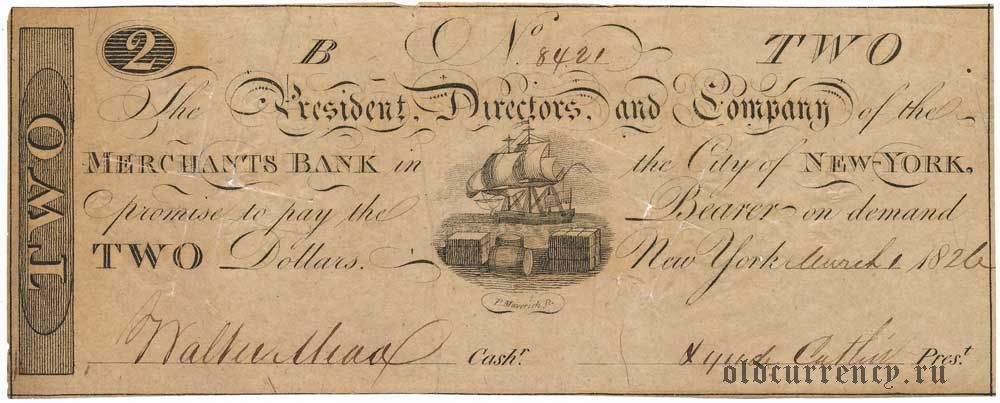 2 B No. 8421 TWO
TWO
The President, Directors, and Company of the
MERCHANTS BANK in the City of NEW-YORK,
promise to pay the Bearer on demand
TWO Dollars. New York March 1 1826
P. Maverick Sc.
Walter Mead Cashr. Catlin Prest.
oldcurrency.ru